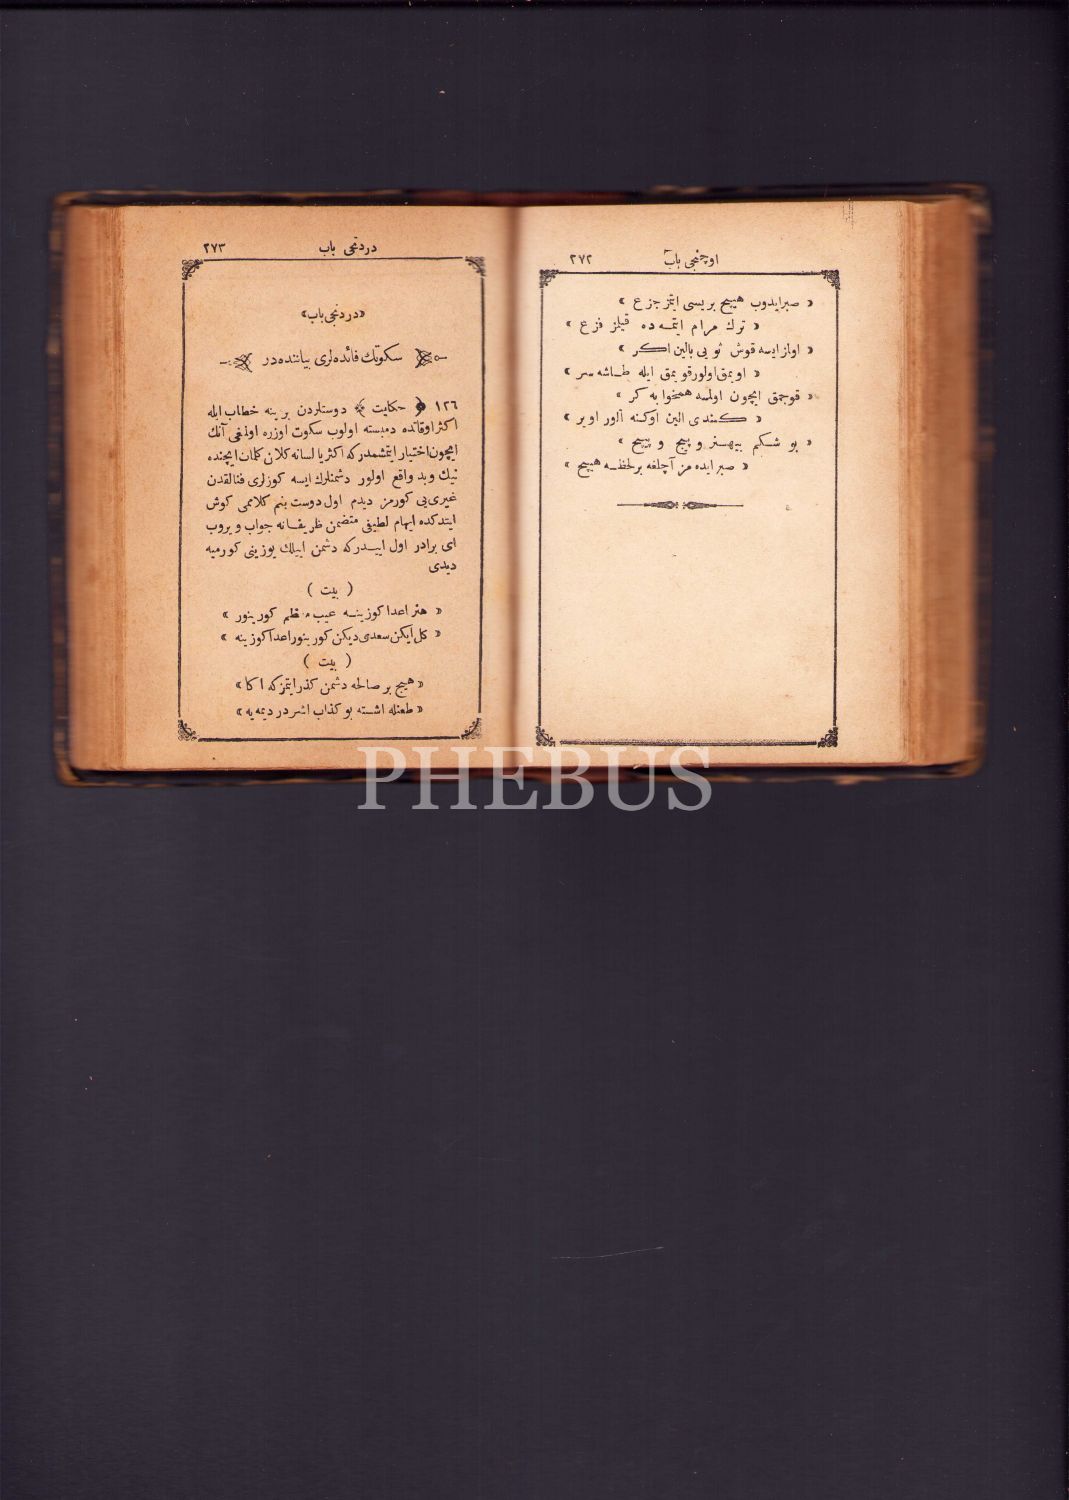 اوچنجی باب ٢٧٢
« صبر ایدوب هیچ بریسی ایتمز جزع »
« ترك مرام ایتمه ده قیلز فزع »
« اولز ایسه قوش توبی بالین اكر »
« اویمق اولور قویمق ایله طاشه سر »
قوجمق ایچون اولمسه همخوابه كر »
« كندی الین اوكنه آلور اویر »
« بو شكم بیهنر و پیچ و پیچ »
« صبر ایده مز آچلغه بر لحظه هیچ »
دردنجی باب ٢٧٣
«دردنجی باب»
سكوتك فائده لری بیاننده در
١٢٦ ﴿ حكایت ﴾ دوستلردن برینه خطاب ایله
اكثر اوقاتده دمبسته اولوب سكوت اوزره اولدیغی آنك
ایچون اختیار ایتمشمدر كه اكثریا لسانه كلان كلمات ایچنده
نیك و بد واقع اولور دشمنلرك ایسه كوزلری فنالقدن
غیری یی كورمز دیدم اول دوست بنم كلاممی كوش
ایتدكده ایهام لطیفی متضمن ظریفانه جواب ویروب
ای برادر اول اییدر كه دشمن اییلك یوزینی كورمیه
دیدی
( بیت )
« هنر اعدا كوزینه عیب معظم كورینور »
« كل ایكن سعدی دیكن كورینور اعدا كوزینه »
( بیت )
« هیچ بر صالحه دشمن كذر ایتمز كه اكا »
« طعنله اشته بو كذاب اشردر دیمیه »
PHEBUS